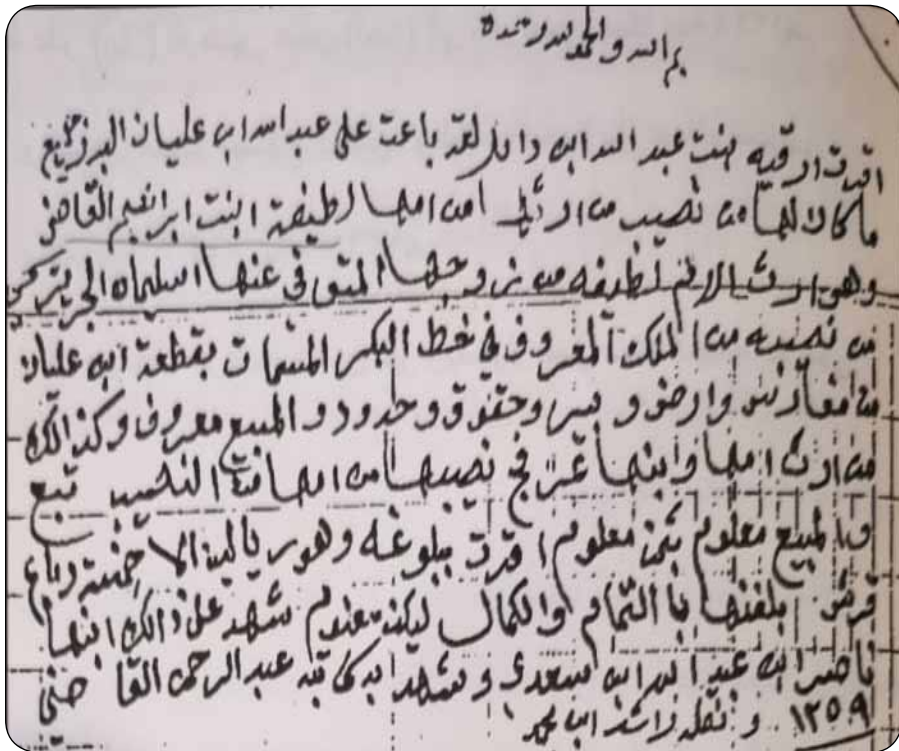 بسم الله والحمد لله وحده
اقرت رقيه بنت عبد الله ابن دايل لقد باعت على عبد الله اب عليان البرزيع
ما كان لها من نصيب من ارثها من امها لطيفة ابنت ابراهيم القاضي
وهو ارث الام لطيفه من زوجها المتوفى عنها اسليمان
من نصيبه من الملك المعروف في خط البكر المسمات بقطعة ابن عليان
من مغارس وارض وبير وحقوق وحدود والمبيع معروف وكذالك
من ارث امها وابنها نصيبها من امها النصيب تبع
والمبيع معلوم بثمن معلوم اقرت ببلوغه وهو ريالين الا خمسة رباع
قرش ابلغنها با التمام والكمال ليكن معلوم شهد على ذالك ابنها
ناصر ابن عبد الله اب سعدي وشهد ابه كاتبه عبد الرحمن القاضي
١٢٥٩ و نقله راشد اب محمد